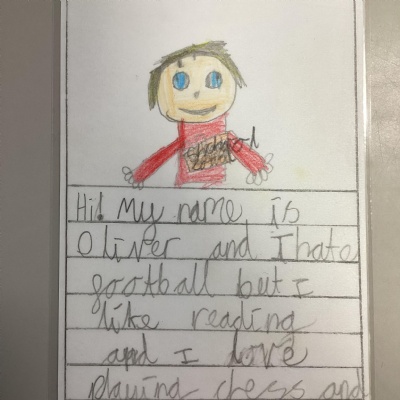 Hi! My name is
Oliver and I hate
football but I
like reading
and I love
playing chess and